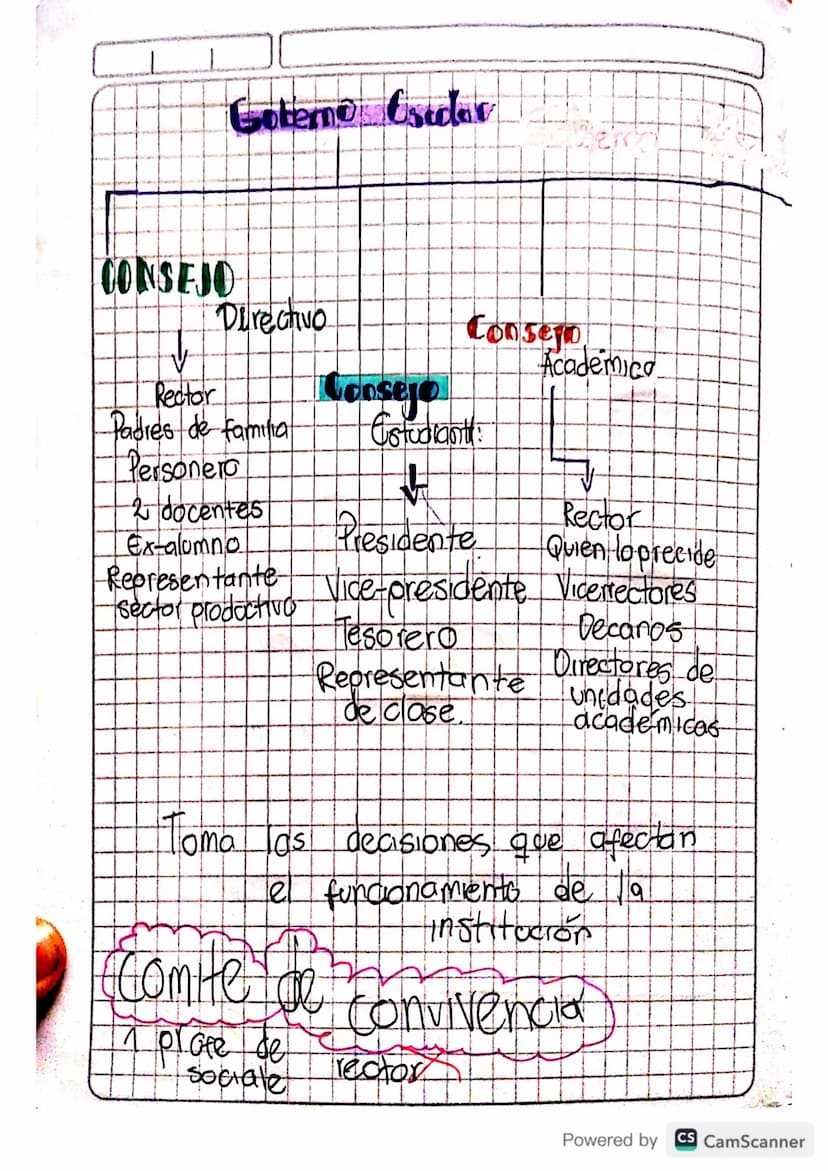 Gobierno Escolar
CONSEJO
Directivo
Rector
Padres de familia
Personero
2 docentes
Ex-alumno
Representante
sector prodoctivo
Consejo
Estudiantil:
Presidente
Vice-presidente
Tesorero
Representante
de clase.
Consejo
Académico
Rector
Quien lo precide
Vicerrectores
Decanos
Directores de
unidades
académicas
Toma las decisiones que afectan
el funcionamiento de la
institución
comite de convivencia
1 profe de rector
sociale
Powered by CS CamScanner